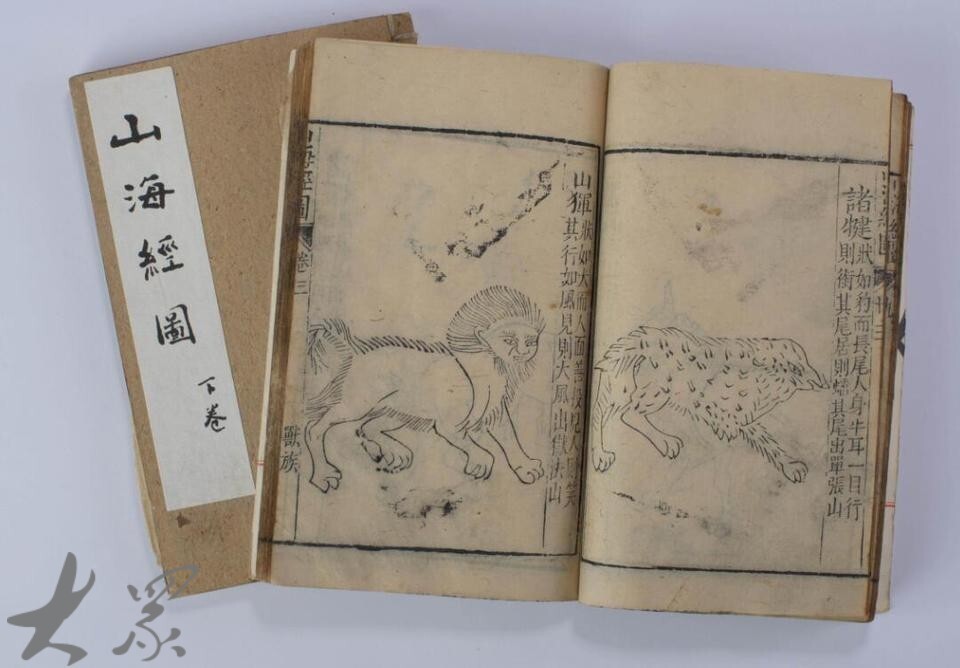 山海經圖
下卷
諸犍狀如豹而長尾人身牛耳一目行
則銜其尾居則蟠其尾出單張山
山𤟤狀如犬而人面善投見人則笑
其行如風見則大風出獄法山
海經圖 卷三
獸族
大眾